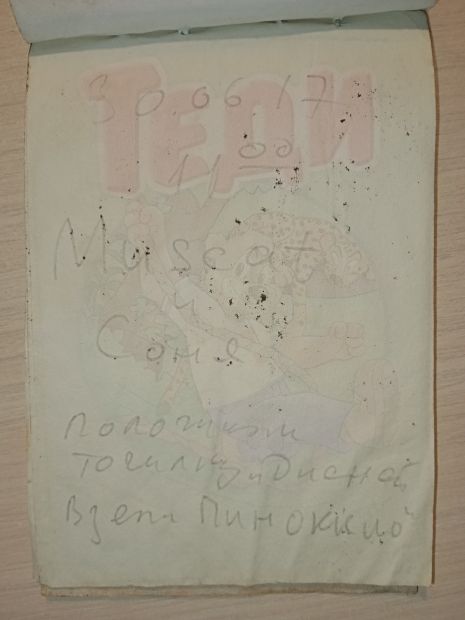 ТЕДИ
30.06 17
11 00
Muscat
и
Соня
положили
точилку "Дисней"
Взели "Пинокийо"